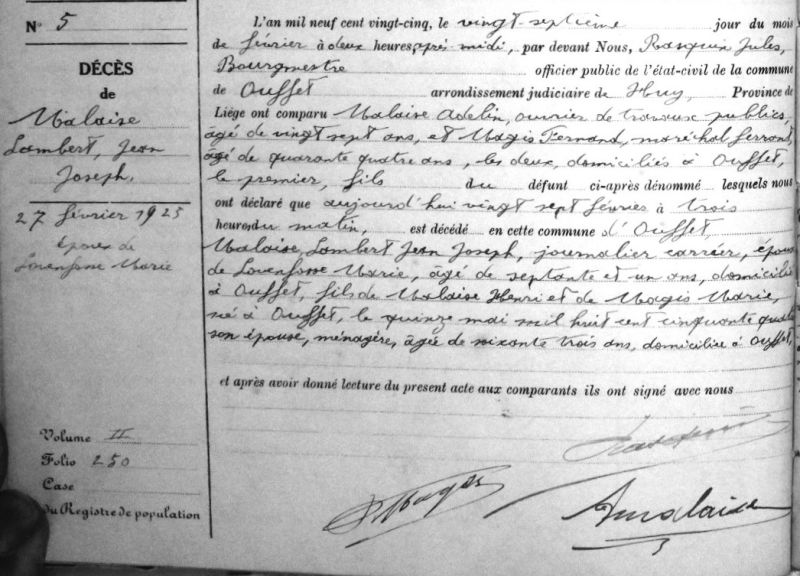 N° 5
DÉCÈS
de
Malaise
Lambert, Jean
Joseph.
27 février 1925
époux de
Lovenfosse Marie
Volume II
Folio 250
Case
du Registre de population
L'an mil neuf cent vingt-cinq, le vingt-septième jour du mois
de février à deux heures après-midi, par devant Nous, Rasquin Jules,
Bourgmestre officier public de l'état-civil de la commune
de Ouffet arrondissement judiciaire de Huy, Province de
Liège ont comparu Malaise Adelin, ouvrier de travaux publics,
âgé de vingt sept ans, et Magis Fernand, maréchal ferrant,
âgé de quarante quatre ans, les deux, domiciliés à Ouffet,
le premier, fils du défunt ci-après dénommé lesquels nous
ont déclaré que aujourd'hui vingt sept février à trois
heures du matin, est décédé en cette commune d'Ouffet,
Malaise, Lambert Jean Joseph, journalier carrier, époux
de Lovenfosse Marie, âgé de septante et un ans, domicilié
à Ouffet, fils de Malaise Henri et de Magis Marie,
né à Ouffet, le quinze mai mil huit cent cinquante quatre
son épouse, ménagère, âgée de soixante trois ans, domiciliée à Ouffet,
et après avoir donné lecture du present acte aux comparants ils ont signé avec nous
Rasquin
F Magis
A Malaise